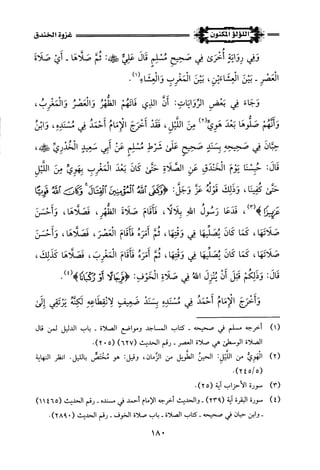 اللؤلؤ المكنون
غزوة الخندق
وفي رواية أخرى في صحيح مسلم قال علي رضي الله عنه: ثم صلاها - أي صلاة
العصر - بين العشاءين، بين المغرب والعشاء(١).
وجاء في بعض الروايات: أن الذي فاتهم الظهر والعصر والمغرب،
وأنهم صلوها بعد هوي(٢) من الليل، فقد أخرج الإمام أحمد في مسنده، وابن
حبان في صحيحه بسند صحيح على شرط مسلم عن أبي سعيد الخدري رضي الله عنه،
قال: حبسنا يوم الخندق عن الصلاة حتى كان بعد المغرب بهوي من الليل
حتى كفينا، وذلك قوله عز وجل: ﴿وكفى الله المؤمنين القتال وكان الله قويا
عزيزا﴾(٣)، فدعا رسول الله بلالا، فأقام صلاة الظهر، فصلاها، وأحسن
صلاتها، كما كان يصليها في وقتها، ثم أمره فأقام العصر، فصلاها، وأحسن
صلاتها، كما كان يصليها في وقتها، ثم أمره فأقام المغرب، فصلاها كذلك،
قال: وذلكم قبل أن ينزل الله في صلاة الخوف: ﴿فرجالا أو ركبانا﴾(٤).
وأخرج الإمام أحمد في مسنده بسند ضعيف لانقطاعه لكنه يرتقي إلى
(١) أخرجه مسلم في صحيحه - كتاب المساجد ومواضع الصلاة - باب الدليل لمن قال
الصلاة الوسطى هي صلاة العصر - رقم الحديث (٦٢٧) (٢٠٥).
(٢) الهوي من الليل: الحين الطويل من الزمان، وقيل: هو مختص بالليل. انظر النهاية
(٢٤٥/٥).
(٣) سورة الأحزاب آية (٢٥).
(٤) سورة البقرة آية (٢٣٩) - والحديث أخرجه الإمام أحمد في مسنده - رقم الحديث (١١٤٦٥)
- وابن حبان في صحيحه - كتاب الصلاة - باب صلاة الخوف - رقم الحديث (٢٨٩٠).
١٨٠